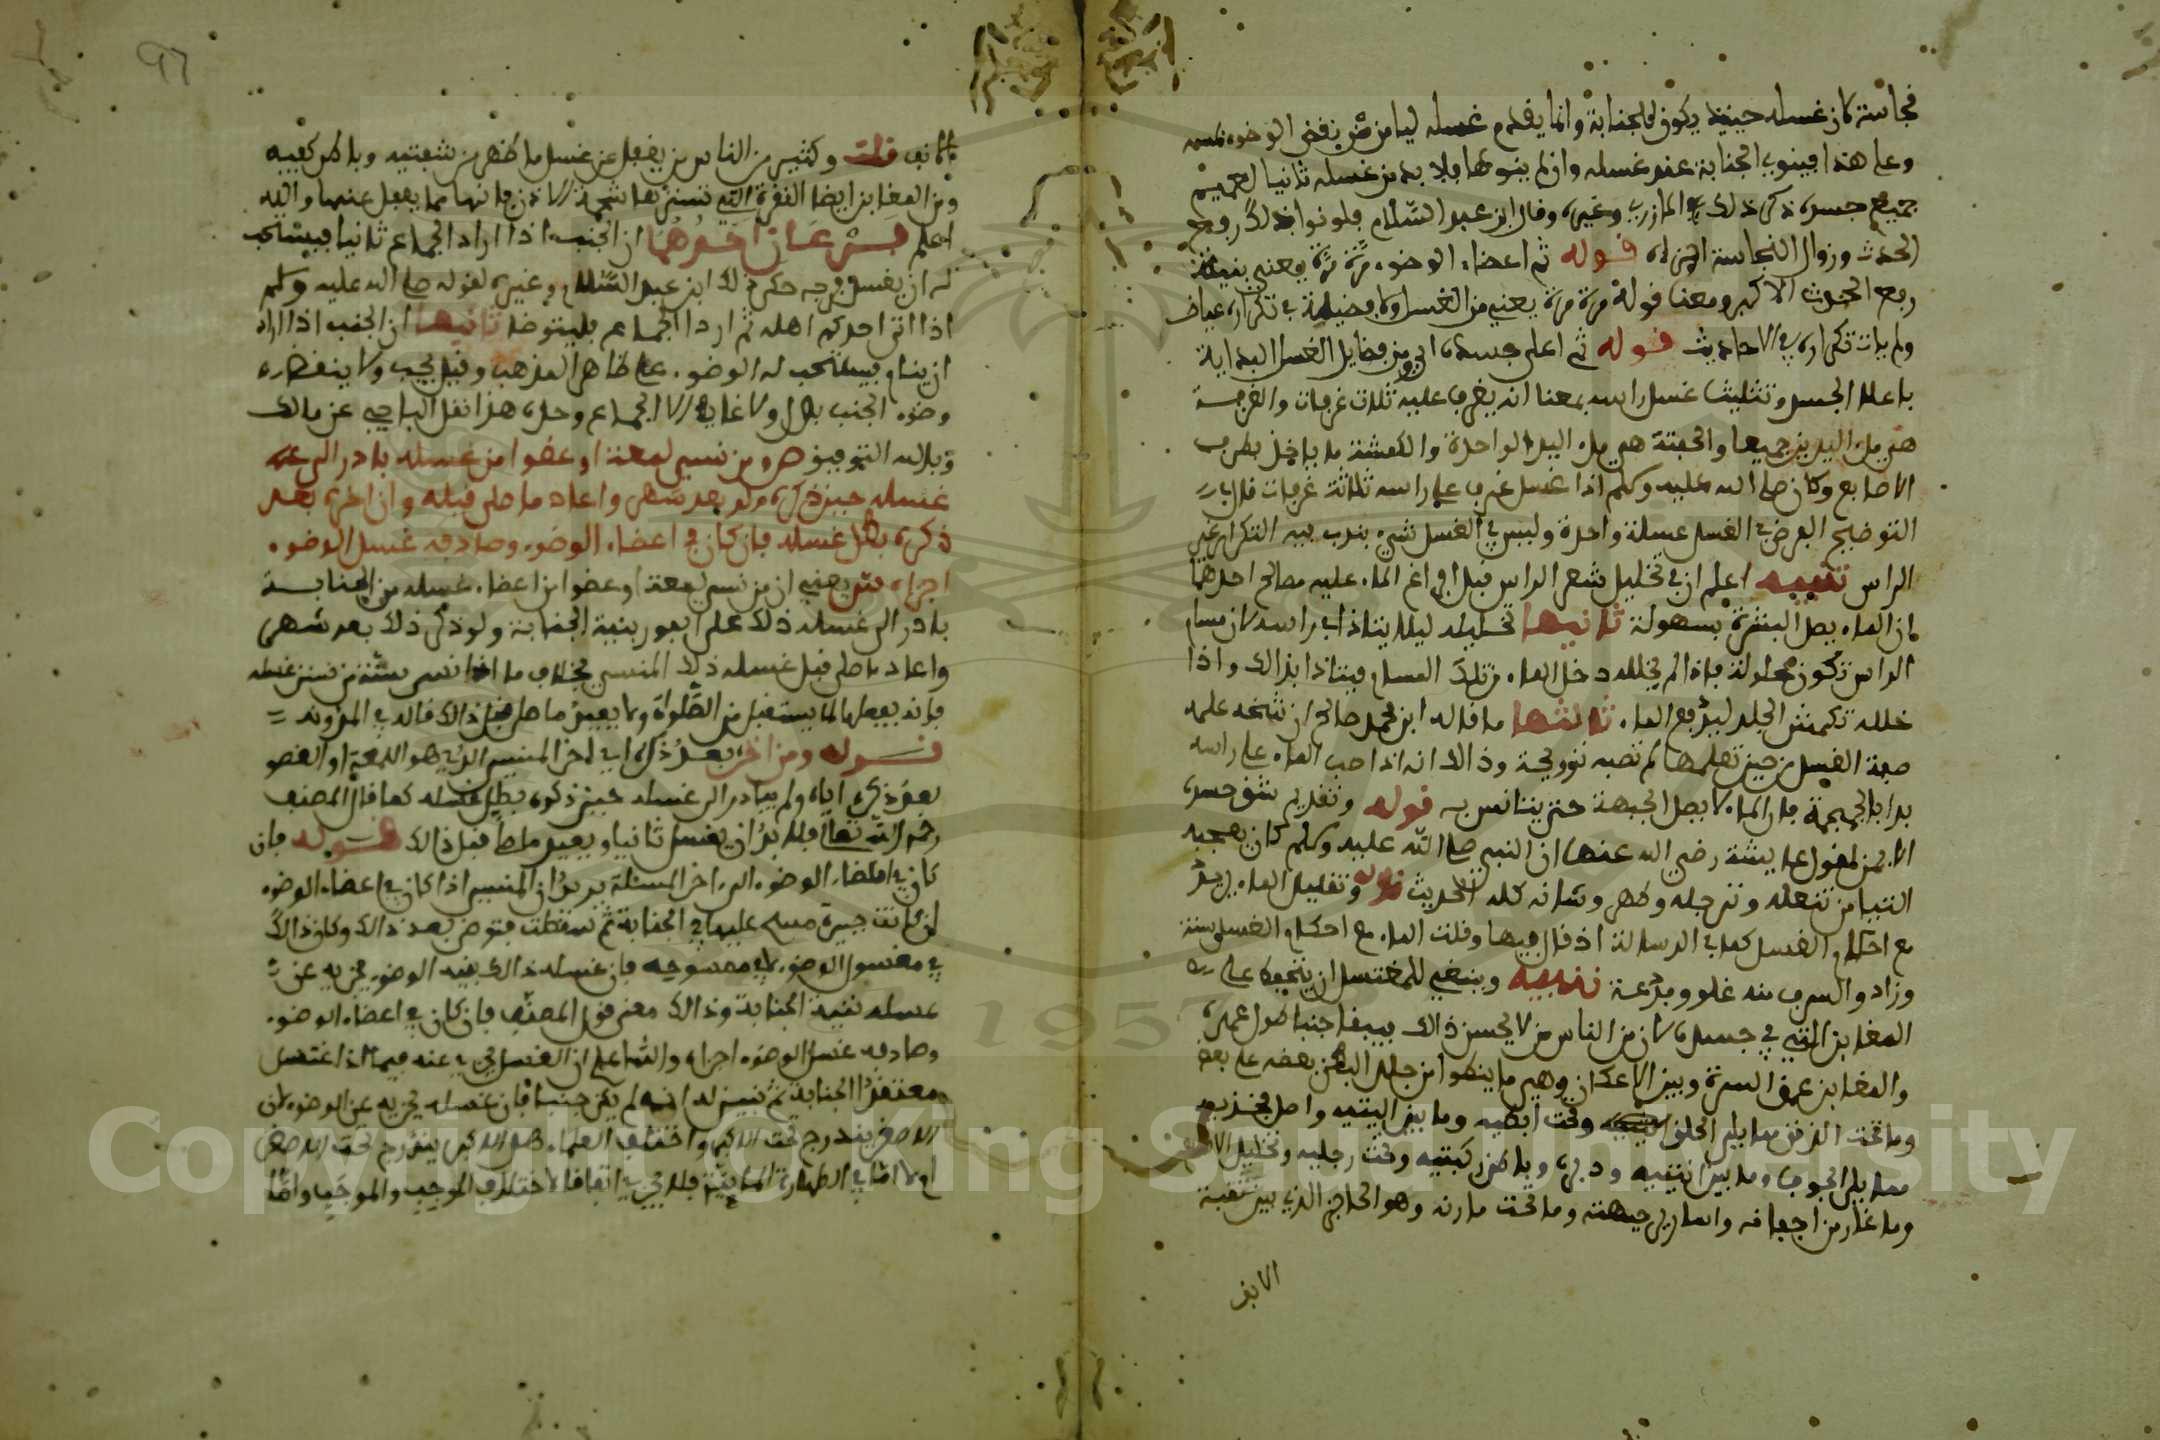 فجاسة كان غسله حينئذ يكون للجنابة وانما يقدم غسله ليامن من نقض الوضوء بلمسه
وعلى هذا فينوي الجنابة عند غسله وان لم ينوها فلا بد من غسله ثانيا لعميم
جميع جسده ذكر ذلك المازري وغيره وقال ابن عبد السلام فلو نوا رفع
الحدث وزوال النجاسة اجزاه قوله ثم اعضاء الوضوء مرة مرة يعني بنية
رفع الحدث الاكبر ومعنا قوله مرة مرة يعني من الغسل ولا فضيلة في تكراره عياض
ولم يات تكراره في الاحاديث قوله ثم اعلى جسده اي ومن فضايل الغسل البداية
باعلا الجسد وتثليث غسل راسه بمعنا انه يغرف عليه ثلاث غرفات والغرفة
هي ملء اليدين جميعا والحفنة هي ملء اليد الواحدة والكمشة ما ياخذ بطرف
الاصابع وكان صلى الله عليه وسلم اذا غسل غرف على راسه ثلاثة غرفات قال في
التوضيح الفرض في الغسل غسلة واحدة وليس في الغسل شيء يندب فيه التكرار غير
الراس تنبيه اعلم ان في تخليل شعر الراس قبل افراغ الماء عليه مصالح احدها
ان الماء يصل البشرة بسهولة ثانيها تخليله ليلا يتاذا في راسه لان مسام
الراس تكون محلولة فاذا لم يخلله دخل الماء من تلك المسام فيتاذا بذالك واذا
خلله تكمش الجلد ليرفع الماء ثالثها ما قاله ابن محمد صالح ان شيخه علمه
صفة الغسل من حين تعلمها لم تصبه نوريجة وذالك انه اذا صب الماء على راسه
بدا بالجمجمة فان الماء لا يصل الجبهة حتى يتانس به قوله وتقديم شق جسده
الايمن لقول عايشة رضي الله عنها ان النبي صلى الله عليه وسلم كان يعجبه
التيامن تنعله وترجله وطهره وشانه كله الحديث قوله وتقليل الماء بلا حد
مع احكام الغسل كما في الرسالة اذ قال فيها وقلت الماء مع احكام الغسل سنة
وزاد والسرف منه غلو وبدعة تنبيه وينبغي للمغتسل ان يتحفظ على
المغابن التي في جسده لان من الناس من لا يحسن ذالك فيبقا جنبا طول عمره
والمغابن عمق السرة وبين الاعكان وهي ما ينطوا من جلد البطن بعضه على بعض
وما تحت الذقن مما يلي الحلق وتحت ابطيه وما بين اليتيه واصل فخذيه
مما يلي الجوف وما بين انثييه ودبره وباطن ركبتيه وتحت رجليه وتخليل
وما غار من اجفانه واسارير جبهته وما تحت مارنه وهو الحاجز الذي بين ثقبة
الانف
الانف قلت وكثير من الناس من يغفل عن غسل ما ظهر من شفتيه وباطن كعبيه
ومن المغابن ايضا النقرة التي تسترها شحمة الاذن فانها مما يغفل عنها والله
اعلم فرعان احدهما ان الجنب اذا اراد الجماع ثانيا فيستحب
له ان يغسل فرجه حكى ذلك ابن عبد السلام وغيره لقوله صلى الله عليه وسلم
اذا اتى احدكم اهله ثم اراد الجماع فليتوضا ثانيها ان الجنب اذا اراد
ان ينام فيستحب له الوضوء على ظاهر المذهب وقيل يجب ولا ينقض
وضوء الجنب بول ولا غايط الا الجماع وحده هذا نقل الباجي عن مالك
وبالله التوفيق ص ومن نسي لمعة او عضوا من غسله بادر الى
غسله حين ذكره ولو بعد شهر واعاد ما صلى قبله وان اخره بعد
ذكره بطل غسله فان كان في اعضاء الوضوء وصادفه غسل الوضوء
اجزاه ش يعني ان من نسي لمعة او عضوا من اعضاء غسله من الجنابة
بادر الى غسله ذلك على الفور بنية الجنابة ولو ذكر ذلك بعد شهر
واعاد ما صلى قبل غسله ذلك المنسي بخلاف ما اذا نسي سنة من سنن غسله
فانه يفعلها لما يستقبل من الصلواة ولا يعيد ما صلى قبل ذالك قاله في المدونة
قوله ومن اخره بعد ذكره اي اخر المنسي الذي هو اللمعة او العضو
بعد ذكره اياه ولم يبادر الى غسله حين ذكره بطل غسله كما قال المصنف
رحمه الله تعالى فلا بد ان يغسل ثانيا ويعيد ما صلى قبل ذالك قوله فان
كان في اعضاء الوضوء الى اخر المسئلة يريد ان المنسي اذا كان في اعضاء الوضوء
كان كانت جبيرة مسح عليها في الجنابة ثم سقطت فتوضى بعد ذالك وكان ذالك
في مغسول الوضوء لا في ممسوحه فان غسله ذالك بنية الوضوء يجزيه عن
غسله بنية الجنابة وذالك معنى قول المصنف فان كان في اعضاء الوضوء
وصادفه غسل الوضوء اجزاه والله اعلم ان الغسل يجزيه عنه فيما اذا اغتسل
معتقدا الجنابة ثم تبين له انه لم يكن جنبا فان غسله يجزيه عن الوضوء لان
الاصغر يندرج تحت الاكبر واختلف العلماء هل الاكبر يندرج تحت الاصغر
او لا اما في الطهارة المائية فلا تجزيه اتفاقا لاختلاف الموجب والموجَب واما